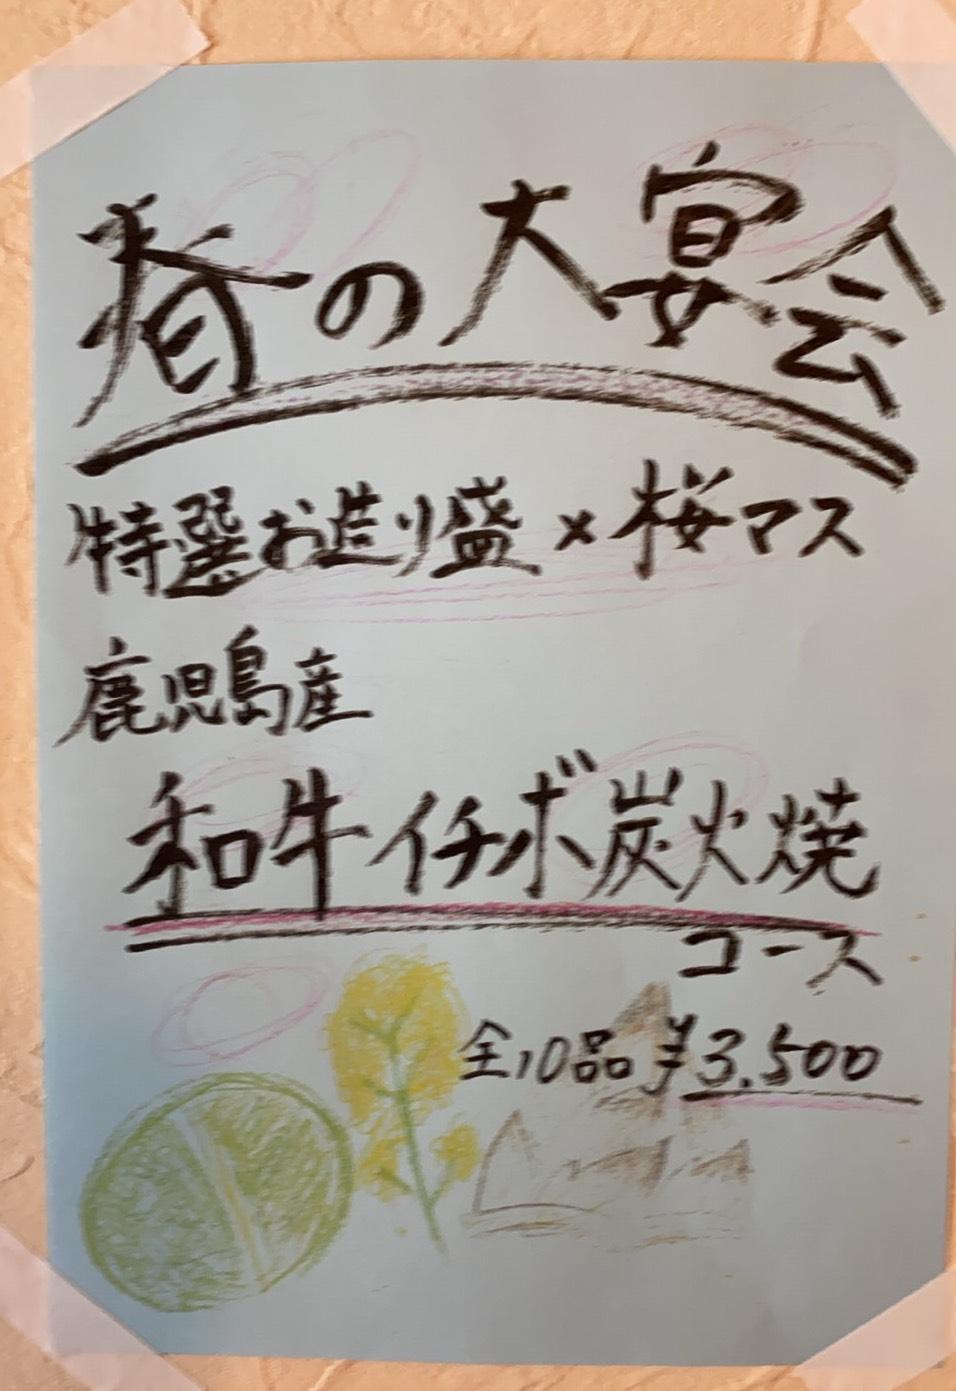 春の大宴会
特選お造り盛×桜マス
鹿児島産
和牛イチボ炭火焼
コース
全10品¥3,500